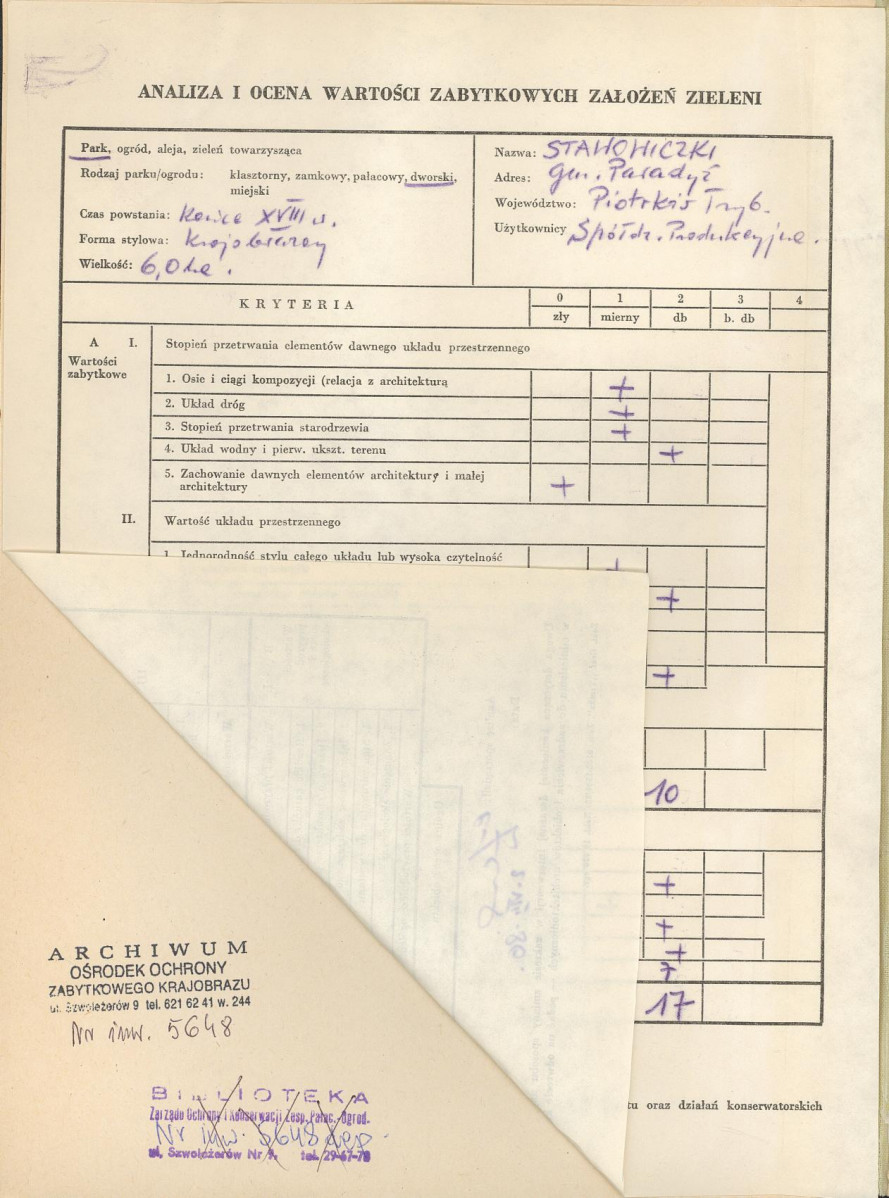 ANALIZA I OCENA WARTOŚCI ZABYTKOWYCH ZAŁOŻEŃ ZIELENI
Park, ogród, aleja, zieleń towarzysząca
Rodzaj parku/ogrodu: klasztorny, zamkowy, pałacowy, dworski,
miejski
Czas powstania: Koniec XVIII w.
Forma stylowa: Krajobrazowy
Wielkość: 6,0 ha.
Nazwa: STAWOWICZKI
Adres: gm. Paradyż
Województwo: Piotrków Tryb.
Użytkownicy Spółdz. Produkcyjna.
KRYTERIA 0 1 2 3 4
zły mierny db b. db
A I. Stopień przetrwania elementów dawnego układu przestrzennego
Wartości
zabytkowe
1. Osie i ciągi kompozycji (relacja z architekturą +
2. Układ dróg +
3. Stopień przetrwania starodrzewia +
4. Układ wodny i pierw. ukszt. terenu +
5. Zachowanie dawnych elementów architektury i małej
architektury +
II. Wartość układu przestrzennego
1. Jednorodność stylu całego układu lub wysoka czytelność
+
+
+
10
+
+
+
7
17
tu oraz działań konserwatorskich
ARCHIWUM
OŚRODEK OCHRONY
ZABYTKOWEGO KRAJOBRAZU
ul. Szwoleżerów 9 tel. 621 62 41 w. 244
Nr inw. 5648
BIBLIOTEKA
Zarządu Ochrony i Konserwacji Zesp. Pałac.-Ogrod.
Nr inw. 5648
ul. Szwoleżerów Nr 9, tel. 29-67-79